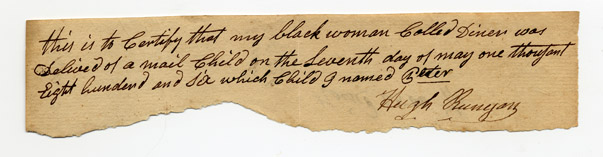 this is to Certify that my black woman Called Dinen was
Delived of a mail Child on the Seventh day of may one thousant
Eight hundred and six which Child I named Peter
Hugh Runyan